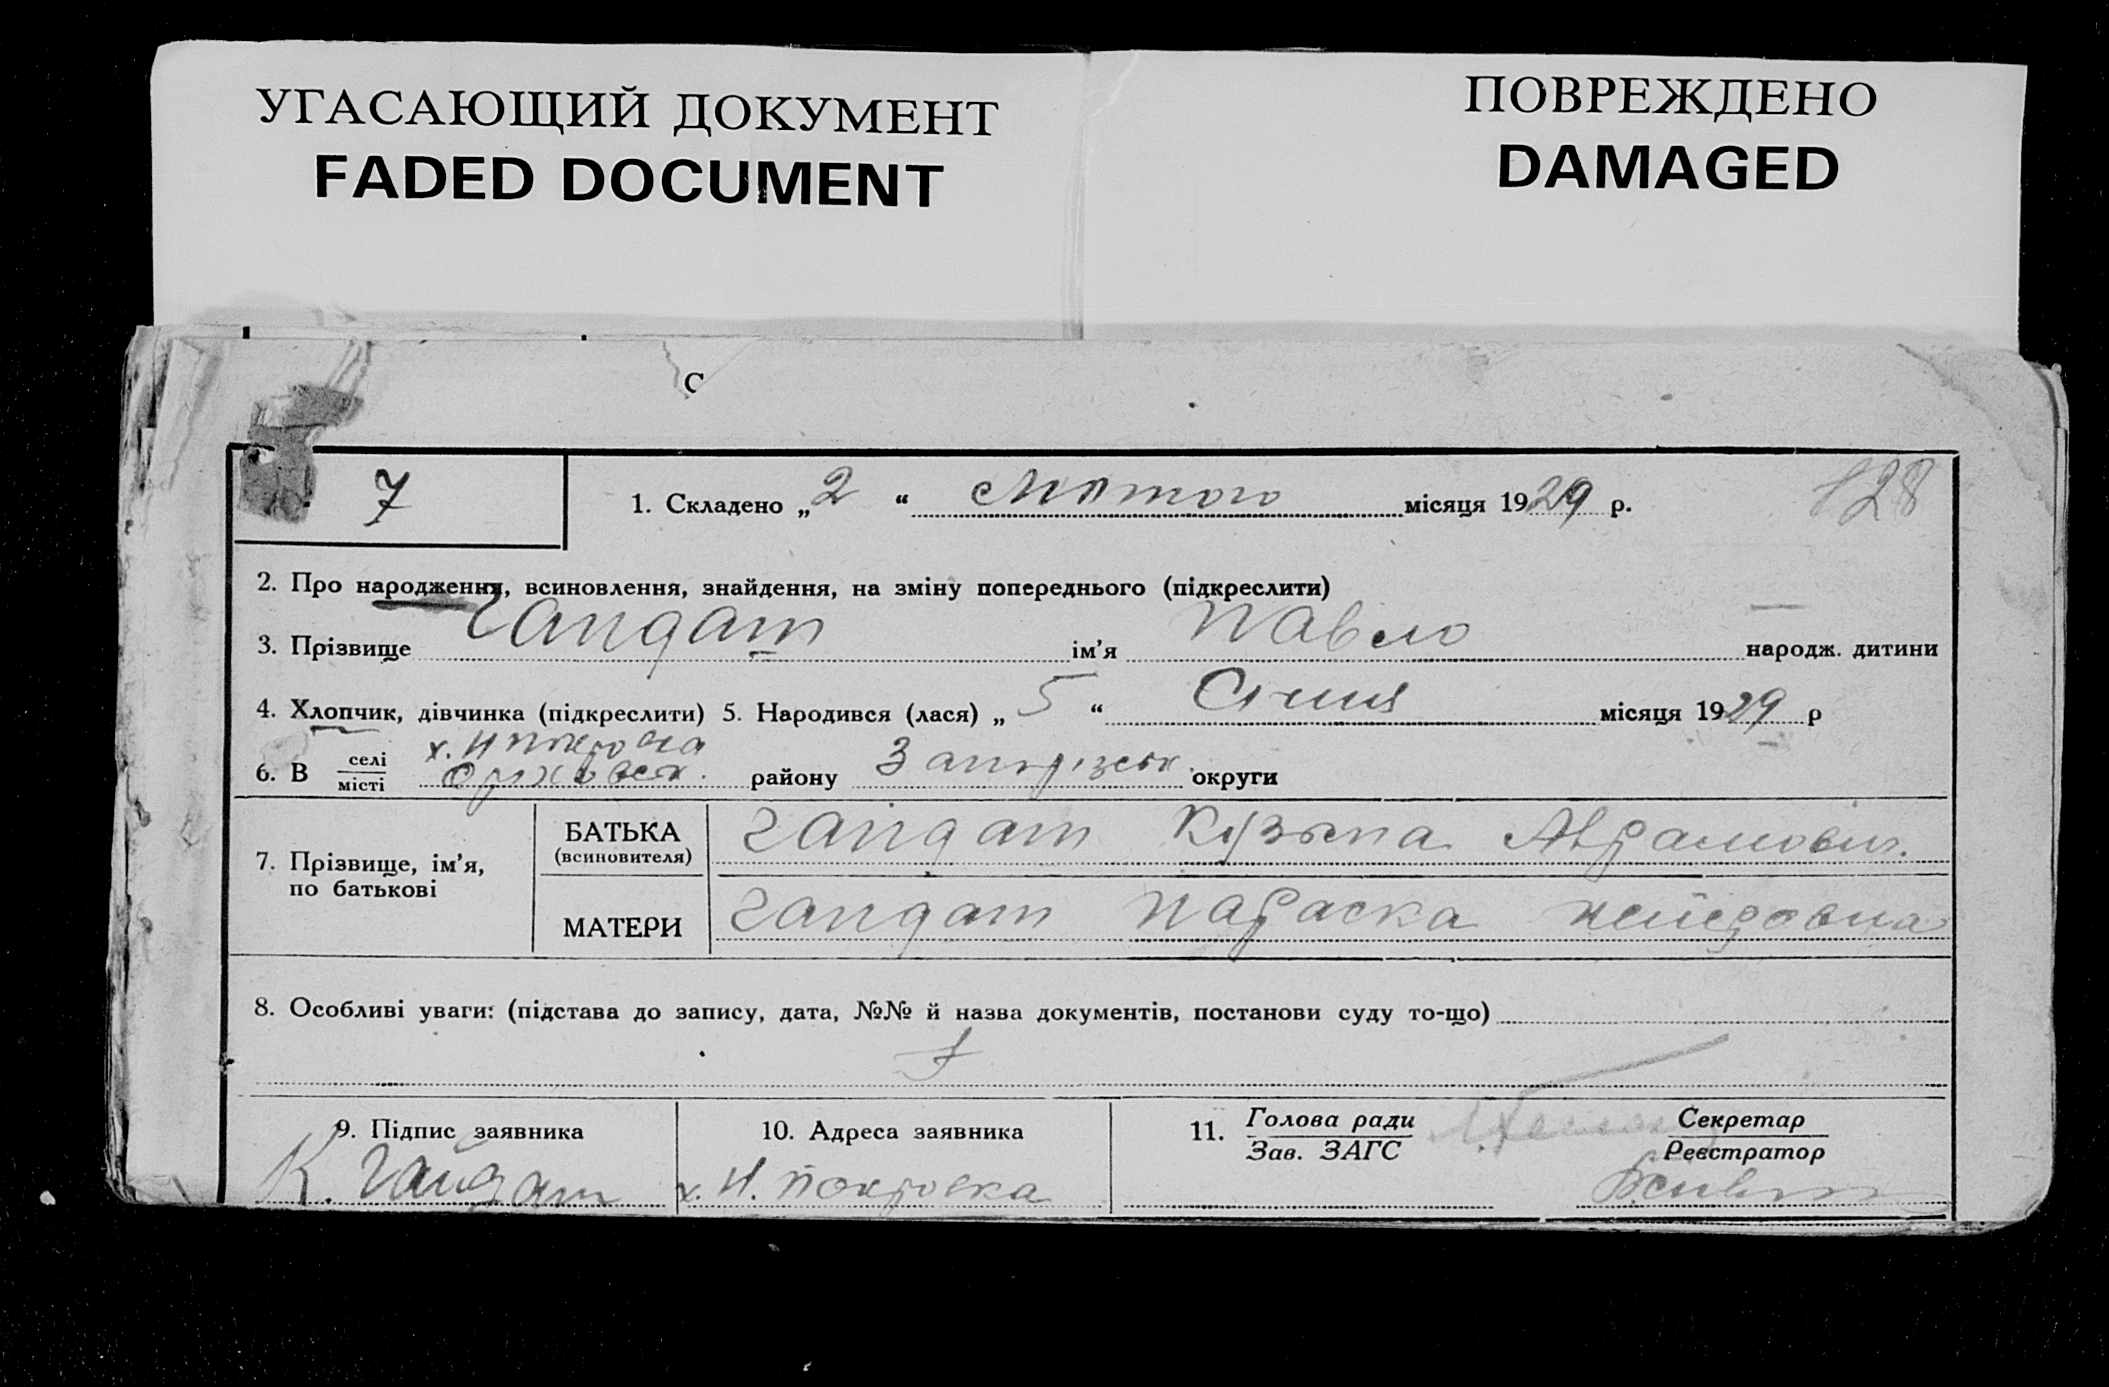 УГАСАЮЩИЙ ДОКУМЕНТ
FADED DOCUMENT
ПОВРЕЖДЕНО
DAMAGED
С
7
1. Складено „2“ Лютого місяця 1929 р.
128
2. Про народження, всиновлення, знайдення, на зміну попереднього (підкреслити)
3. Прізвище Гайдат ім’я Павло народж. дитини
4. Хлопчик, дівчинка (підкреслити) 5. Народився (лася) „5“ Січня місяця 1929 р
х. Н покровка
6. В селі місті Оріхівськ. району Запорізськ. округи
7. Прізвище, ім’я, по батькові
БАТЬКА (всиновителя) Гайдат Кузьма Аврамович.
МАТЕРИ Гайдат Параска
8. Особливі уваги: (підстава до запису, дата, №№ й назва документів, постанови суду то-що)
9. Підпис заявника
К. Гайдат
10. Адреса заявника
х. Н. Покровка
11. Голова ради
Зав. ЗАГС
Секретар
Реєстратор